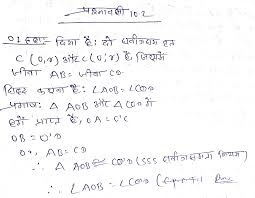 प्रश्नावली 10.2
01 हल: दिया है: दो सर्वांगसम वृत
C (O, r) और C (O', r) हैं, जिसमें
जीवा AB = जीवा CD
सिद्ध करना है: ∠AOB = ∠CO'D
प्रमाण: Δ AOB और Δ CO'D में
हमें प्राप्त है, OA = O'C
OB = O'D
AB = CD
∴ Δ AOB ≅ CO'D (SSS सर्वांगसम नियम)
∴ ∠AOB = ∠CO'D